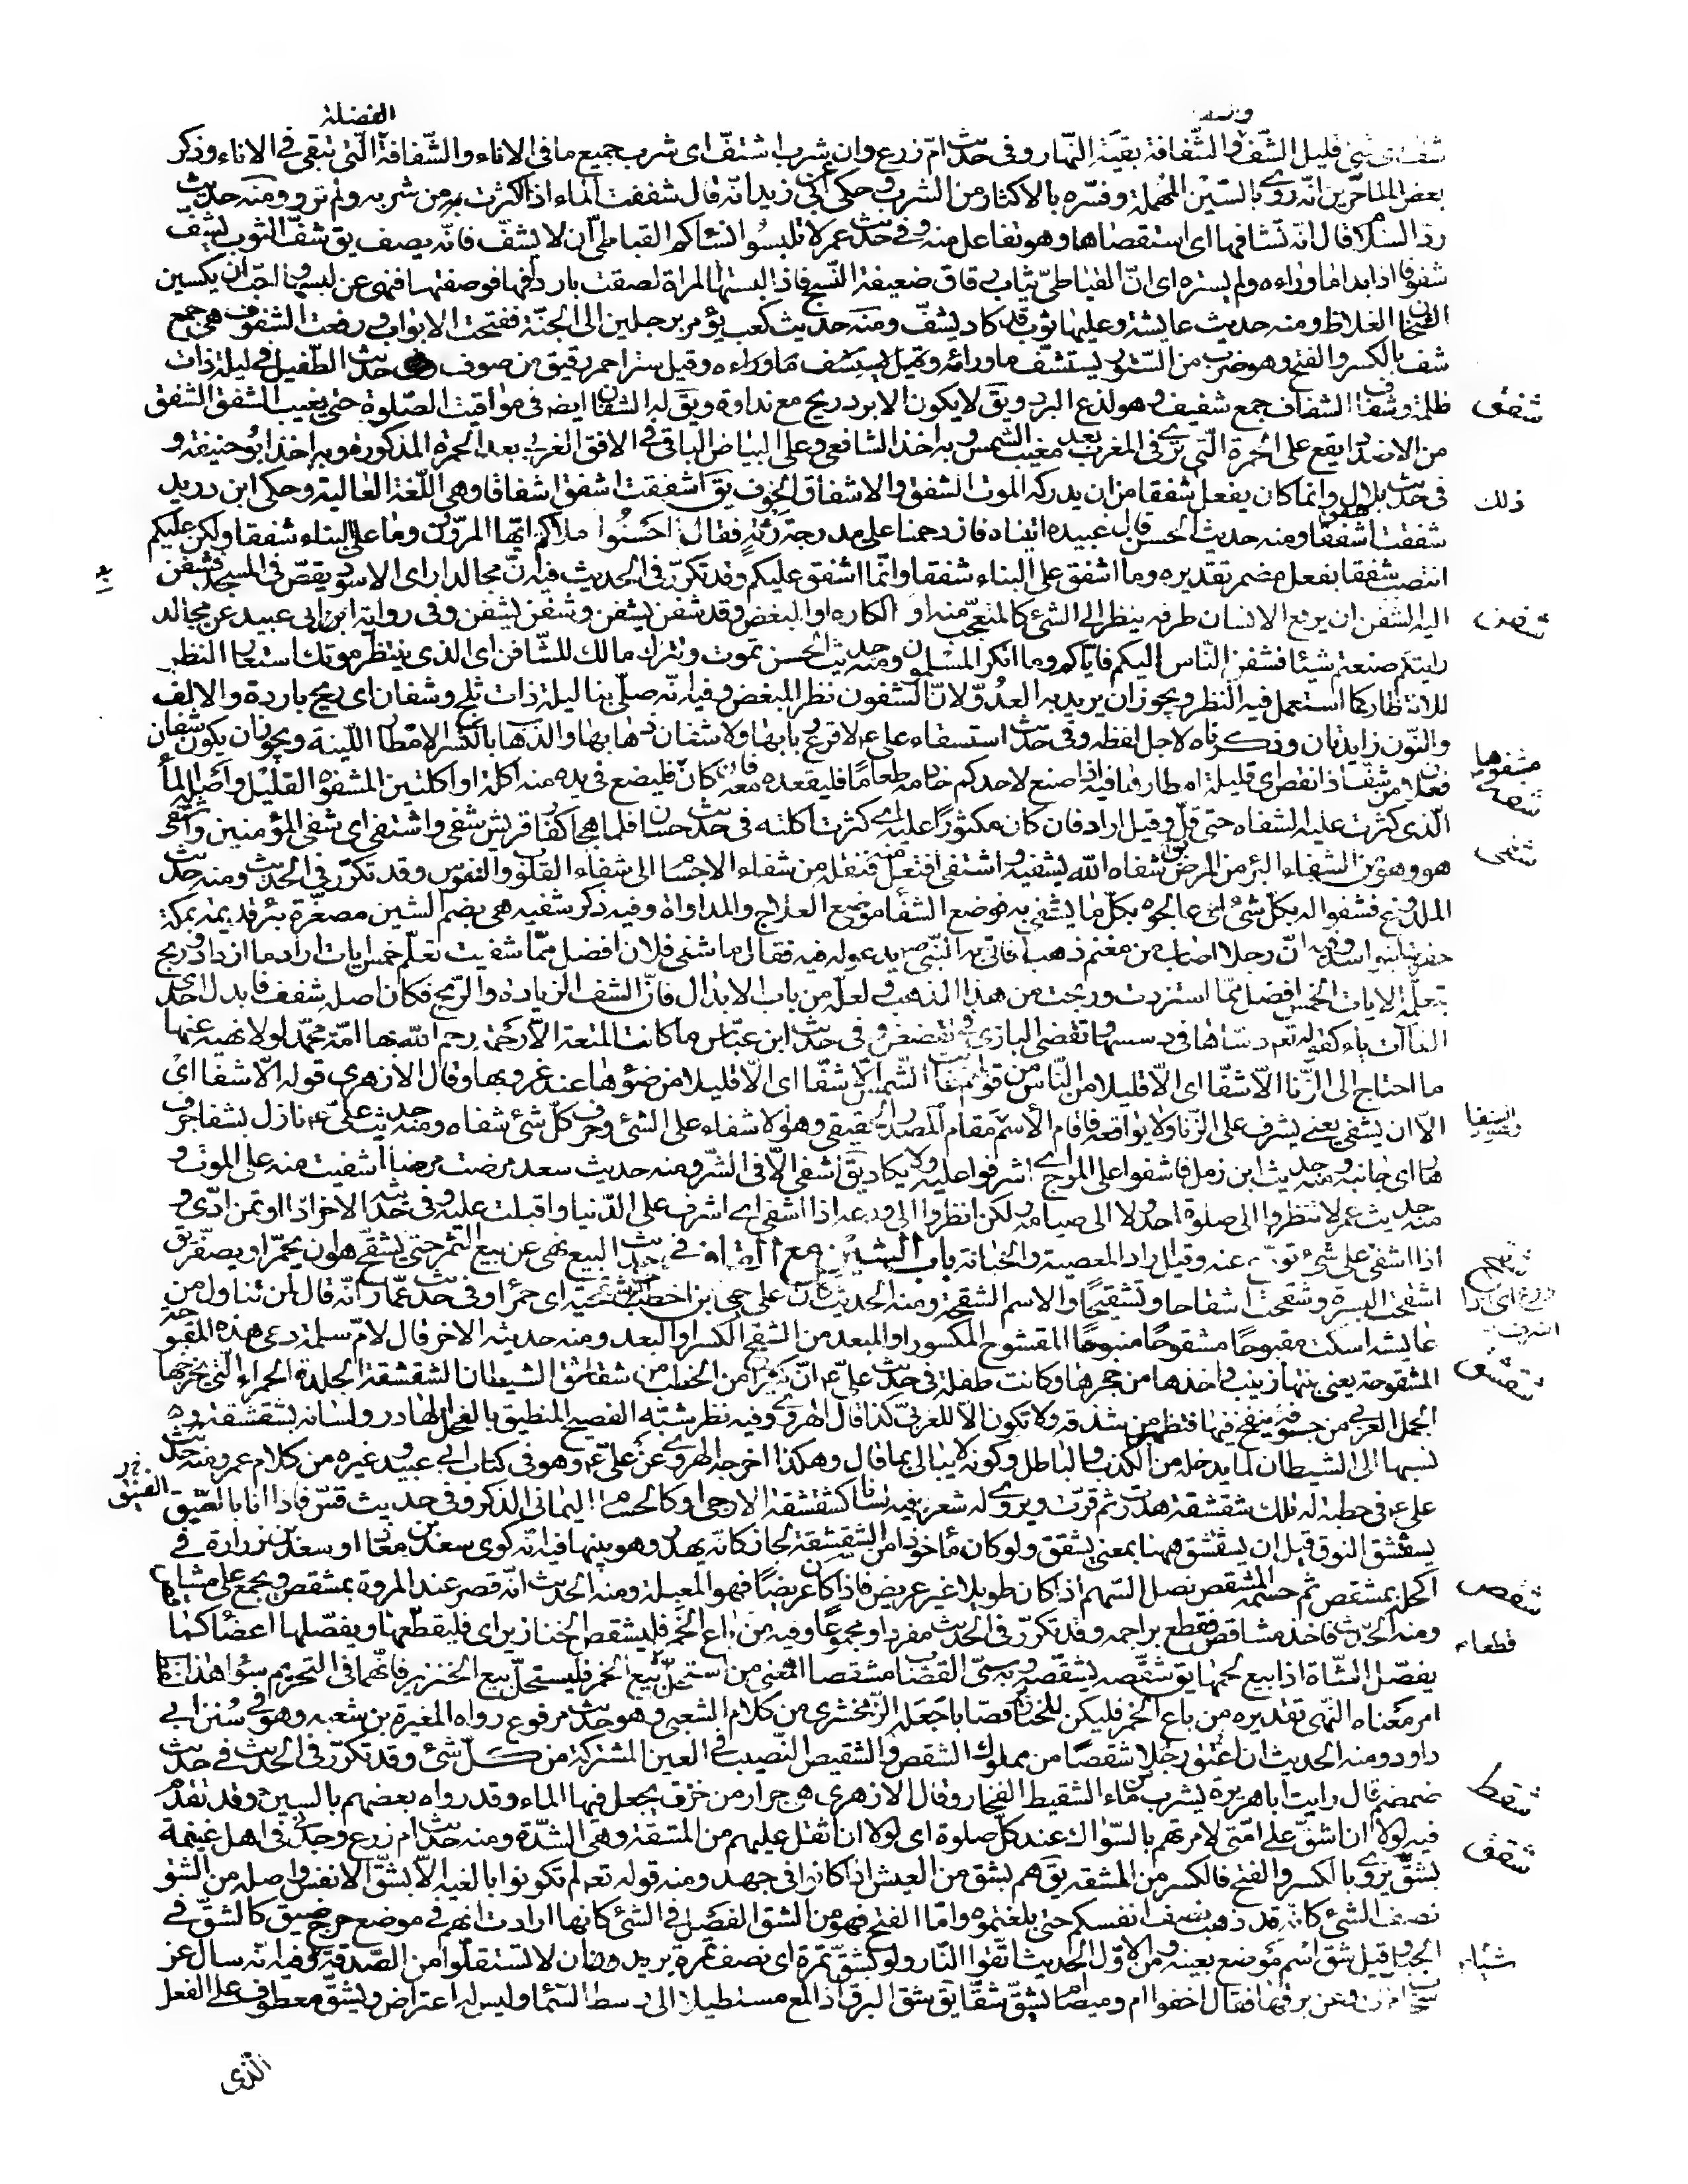 الفضلة
شفا اى شئ قليل الشّفف والشّفافة بقيّة النّهار وفى حديث امّ زرع وان شرب اشتفّ اى شرب جميع ما فى الاناء والشّفافة الّتى تبقى فى الاناء وذكر
بعض المتاخّرين انّه روى بالسّين المهملة وفسّره بالاكثار من الشرب وحكى ابى زيد انّه قال شففت الماء اذا اكثرت من شربه ولم ترو ومنه حديث
ردّ السلام قال انّه تشافّها اى استقصاها وهو تفاعل منه وفى حديث عمر لا تلبسوا نسائكم القباطىّ ان لا يشفّ فانّه يصف يق شفّ الثوب يشفّ
شفوفا اذا بدا ما وراءه ولم يستره اى انّ القباطىّ ثياب رقاق ضعيفة النّسج فاذا لبستها المراة لصقت باردافها فوصفتها فنهى عن لبسها واحبّ ان يكسين
الثخان الغلاظ ومنه حديث عايشة وعليها ثوب قد كاد يشفّ ومنه حديث كعب يؤمر برجلين الى الجنّة ففتحت الابواب ورفعت الشفوف هى جمع
شف بالكسر والفتح وهو ضرب من السّتور يستشفّ ما ورائه وقيل ستر احمر رقيق من صوف وفى حديث الطّفيل فى ليلة ذات
ظلمة وشفاف الشفاف جمع شفيف وهو لذع البرد ويق لا يكون الا برد ريح مع نداوة ويق له الشفان ايضا فى مواقيت الصّلوة حتى يغيب الشفق الشفق
شفق
من الاضداد يقع على الحمرة الّتى ترى فى المغرب بعد مغيب الشّمس وبه اخذ الشافعى وعلى البياض الباقى فى الافق الغربى بعد الحمرة المذكورة وبه اخذ ابو حنيفة و
فى حديث بلال وانما كان يفعل شفقا من ان يدركه الموت الشفق والاشفاق الخوف يق اشفقت اشفق اشفاقا وهى اللّغة العالية وحكى ابن دريد
ذلك
شفقت اشفق شفقا ومنه حديث الحسن قال عبيده اتيناه فازدحمنا على مدرجة رثّة فقال احسنوا ملاكم ايّها المرؤن وما على البناء شفقا ولكن عليكم
انتصب شفقا بفعل مضمر تقديره وما اشفق على البناء شفقا وانّما اشفق عليكم وقد تكرّر فى الحديث فيه انّ مجالدا راى الاسود يقصّ فى المسجد فشفن
اليه الشفن ان يرفع الانسان طرفه ينظر الى الشئ كالمتعجّب منه او الكاره او المبغض وقد شفن يشفن وشفن يشفن وفى رواية ابن ابى عبيد عن مجالد
شفن
رايتكم صنعتم شيئا فشفن النّاس اليكم فايّاكم وما انكر المسلمون ومنه حديث الحسن تموت وتترك مالك للشّافن اى الذى ينتظر موتك استعار النظر
للانتظار كما استعمل فيه النظر ويجوز ان يريد به العدوّ لانّ الشفون نظر المبغض وفيه انّه صلّى بنا ليلة ذات ثلج وشفان اى ريح باردة والالف
والنّون زايدتان وذكرناه لاجل لفظه وفى حديث استسقاء على ع لا قزع ربابها ولا شفان ذهابها والذّهاب بالكسر الامطار اللّينة ويجوز ان يكون شفان
فعلان من شفّ اذا نقص اى قليلة امطارها فيه اذا صنع لاحدكم خادمه طعاما فليقعده معه فان كان مشفوها فليضع فى يده منه اكلة او اكلتين المشفوه القليل واصله الماء
مشفوها
شفه
الّذى كثرت عليه الشفاه حتى قلّ وقيل اراد فان كان مكثورا عليه اى كثرت اكلته فى حديث حسان فلما هجا كفّار قريش شفى واشتفى اى شفى المؤمنين واشتفى
هو وهو من الشفاء البرء من المرض يق شفاه الله يشفيه واشتفى افتعل منه فنقله من شفاء الاجسام الى شفاء القلوب والنفوس وقد تكرّر فى الحديث ومنه حديث
شفى
الملدوغ فشفوا له بكلّ شئ اى عالجوه بكلّ ما يشفى به فوضع الشفا موضع العلاج والمداواة وفيه ذكر شفيه هى بضم الشين مصغّرة بئر قديمة بمكة
حفرتها بنو اسد وفيه انّ رجلا اصاب من مغنم ذهبا فاتى به النّبىّ ص يدعو له فيه فقال ما شفى فلان افضل ممّا شفيت تعلّم خمس ايات اراد ما ازداد وربح
بتعلّمه الايات الخمس افضل ممّا استزدت وربحت من هذا الذهب ولعلّه من باب الابدال فانّ الشفّ الزيادة والرّبح فكان اصله شفف فابدل احدى
الفاآت ياء كقوله تع دسّاها فى دسسها وتقضى البازى فى تقضض وفى حديث ابن عبّاس ما كانت المتعة الّا رحمة رحم الله بها امّة محمّد لولا نهيه عنها
ما احتاج الى الزّنا الّا شفّا اى الّا قليلا من النّاس من قولهم غابت الشّمس الّا شفّا اى الّا قليلا من ضوئها عند غروبها وقال الازهرى قوله الّا شفا اى
الّا ان يشفى يعنى يشرف على الزّنا ولا يواقعه فاقام الاسم مقام المصدر الحقيقى وهو الاشفاء على الشئ وحرف كلّ شئ شفاه ومنه حديث علىّ ع نازل بشفا جرف
هار اى جانبه ومنه حديث ابن زمل فاشفوا على المرج اى اشرفوا عليه ولا يكاد يق اشفى الّا فى الشّر ومنه حديث سعد مرضت مرضا اشفيت منه على الموت و
منه حديث عمر لا تنظروا الى صلوة احد ولا الى صيامه ولكن انظروا الى ورعه اذا اشفى اى اشرف على الدّنيا واقبلت عليه وفى حديثه الاخر اذا اؤتمن ادّى و
اذا اشفى على شئ تورّع عنه وقيل اراد المعصية والخيانة باب الشين مع القاف فى حديث البيع نهى عن بيع التمر حتى يشقّح هو ان يحمرّ او يصفرّ يق
شقح
اشقحت البسرة وشقّحت اشقاحا وتشقيحا والاسم الشقحة ومنه الحديث كان على حيى بن اخطب حلّة شقحيّة اى حمراء وفى حديث عمّار انّه قال لمن تناول من
عايشه اسكت مقبوحا مشقوحا منبوحا المشقوح المكسور او المبعد من الشقح الكسر او البعد ومنه حديثه الاخر قال لامّ سلمة دعى هذه المقبوحة
المشقوحة يعنى بنتها زينب واخذها من حجرها وكانت طفلة فى حديث علىّ ع انّ كثيرا من الخطب من شقاشق الشيطان الشقشقة الجلدة الحمراء الّتى يخرجها
شقشق
الجمل العربى من جوفه ينفخ فيها فتظهر من شدقه ولا تكون الّا للعربىّ كذا قال الهروى وفيه نظر شبّه الفصيح المنطيق بالفحل الهادر ولسانه بشقشقته و
نسبها الى الشيطان لما يدخله من الكذب والباطل وكونه لا يبالى بما قال وهكذا اخرجه الهروى عن علىّ ع وهو فى كتاب ابى عبيد وغيره من كلام عمر ومنه حديث
على ع فى خطبة له تلك شقشقة هدرت ثم قرّت ويروى له شعر فيه لسانا كشقشقة الارحبى او كالحسام اليمانى الذكر وفى حديث قسّ فاذا انا بالفنيق
الفنيق
يشقشق النوق قيل ان يشقشق ههنا بمعنى يشقق ولو كان مأخوذا من الشقشقة لجاز كانّه يهدر وهو بينها فيه انّه كوى سعد بن معاذ او سعد بن زرارة فى
اكحله بمشقص ثم حسمه المشقص نصل السّهم اذا كان طويلا غير عريض فاذا كان عريضا فهو المعبلة ومنه الحديث انّه قصر عند المروة بمشقص ويجمع على مشاقص
شقص
ومنه الحديث فاخذ مشاقص فقطع براجمه وقد تكرّر فى الحديث مفردا ومجموعا وفيه من باع الخمر فليشقص الخنازير اى فليقطّعها ويفصّلها اعضاء كما
قطعا
يفصّل الشّاة اذا بيع لحمها يق شقّصه يشقّصه وبه سمّى القصّاب مشقصا المعنى من استحلّ بيع الخمر فليستحلّ بيع الخنزير فانّهما فى التحريم سواء هذا لفظ
امر معناه النّهى تقديره من باع الخمر فليكن للخنازير قصّابا جعله الزّمخشرى من كلام الشعبى وهو حديث مرفوع رواه المغيرة بن شعبه وهو فى سنن ابى
داود ومنه الحديث ان اعتق رجلا شقصا من مملوك الشقص والشقيص النّصيب فى العين المشتركة من كلّ شئ وقد تكرّر فى الحديث فى حديث
ضمضم قال رايت اباهريرة يشرب من ماء الشقيط الفخار وقال الازهرى هى جرار من خزف يجعل فيها الماء وقد رواه بعضهم بالسين وقد تقدّم
شقط
فيه لولا ان اشقّ على امّتى لامرتهم بالسّواك عند كلّ صلوة اى لولا ان اثقل عليهم من المشقّة وهى الشدّة ومنه حديث ام زرع وجدنى فى اهل غنيمة
شقق
بشقّ يروى بالكسر والفتح فالكسر من المشقه يق هم بشق من العيش اذا كانوا فى جهد ومنه قوله تع لم تكونوا بالغيه الّا بشقّ الانفس واصله من الشق
نصف الشئ كانّه قد ذهب بنصف انفسكم حتى بلغتموه وامّا الفتح فهو من الشق الفصل فى الشئ كانها ارادت انهم فى موضع حرج ضيق كالشقّ فى
الجبل وقيل شق اسم موضع بعينه ومن الاول الحديث اتقوا النّار ولو بشقّ تمرة اى نصف تمرة يريد ان لا تستقلّوا من الصّدقة شيئا وفيه انّه سال عن
شيئا
سحائب مرّت وعن برقها فقال اخفوا ام وميضا ام يشقّ شقّا يق شق البرق اذا لمع مستطيلا الى وسط السّماء وليس له اعتراض ويشقّ معطوف على الفعل
الذى